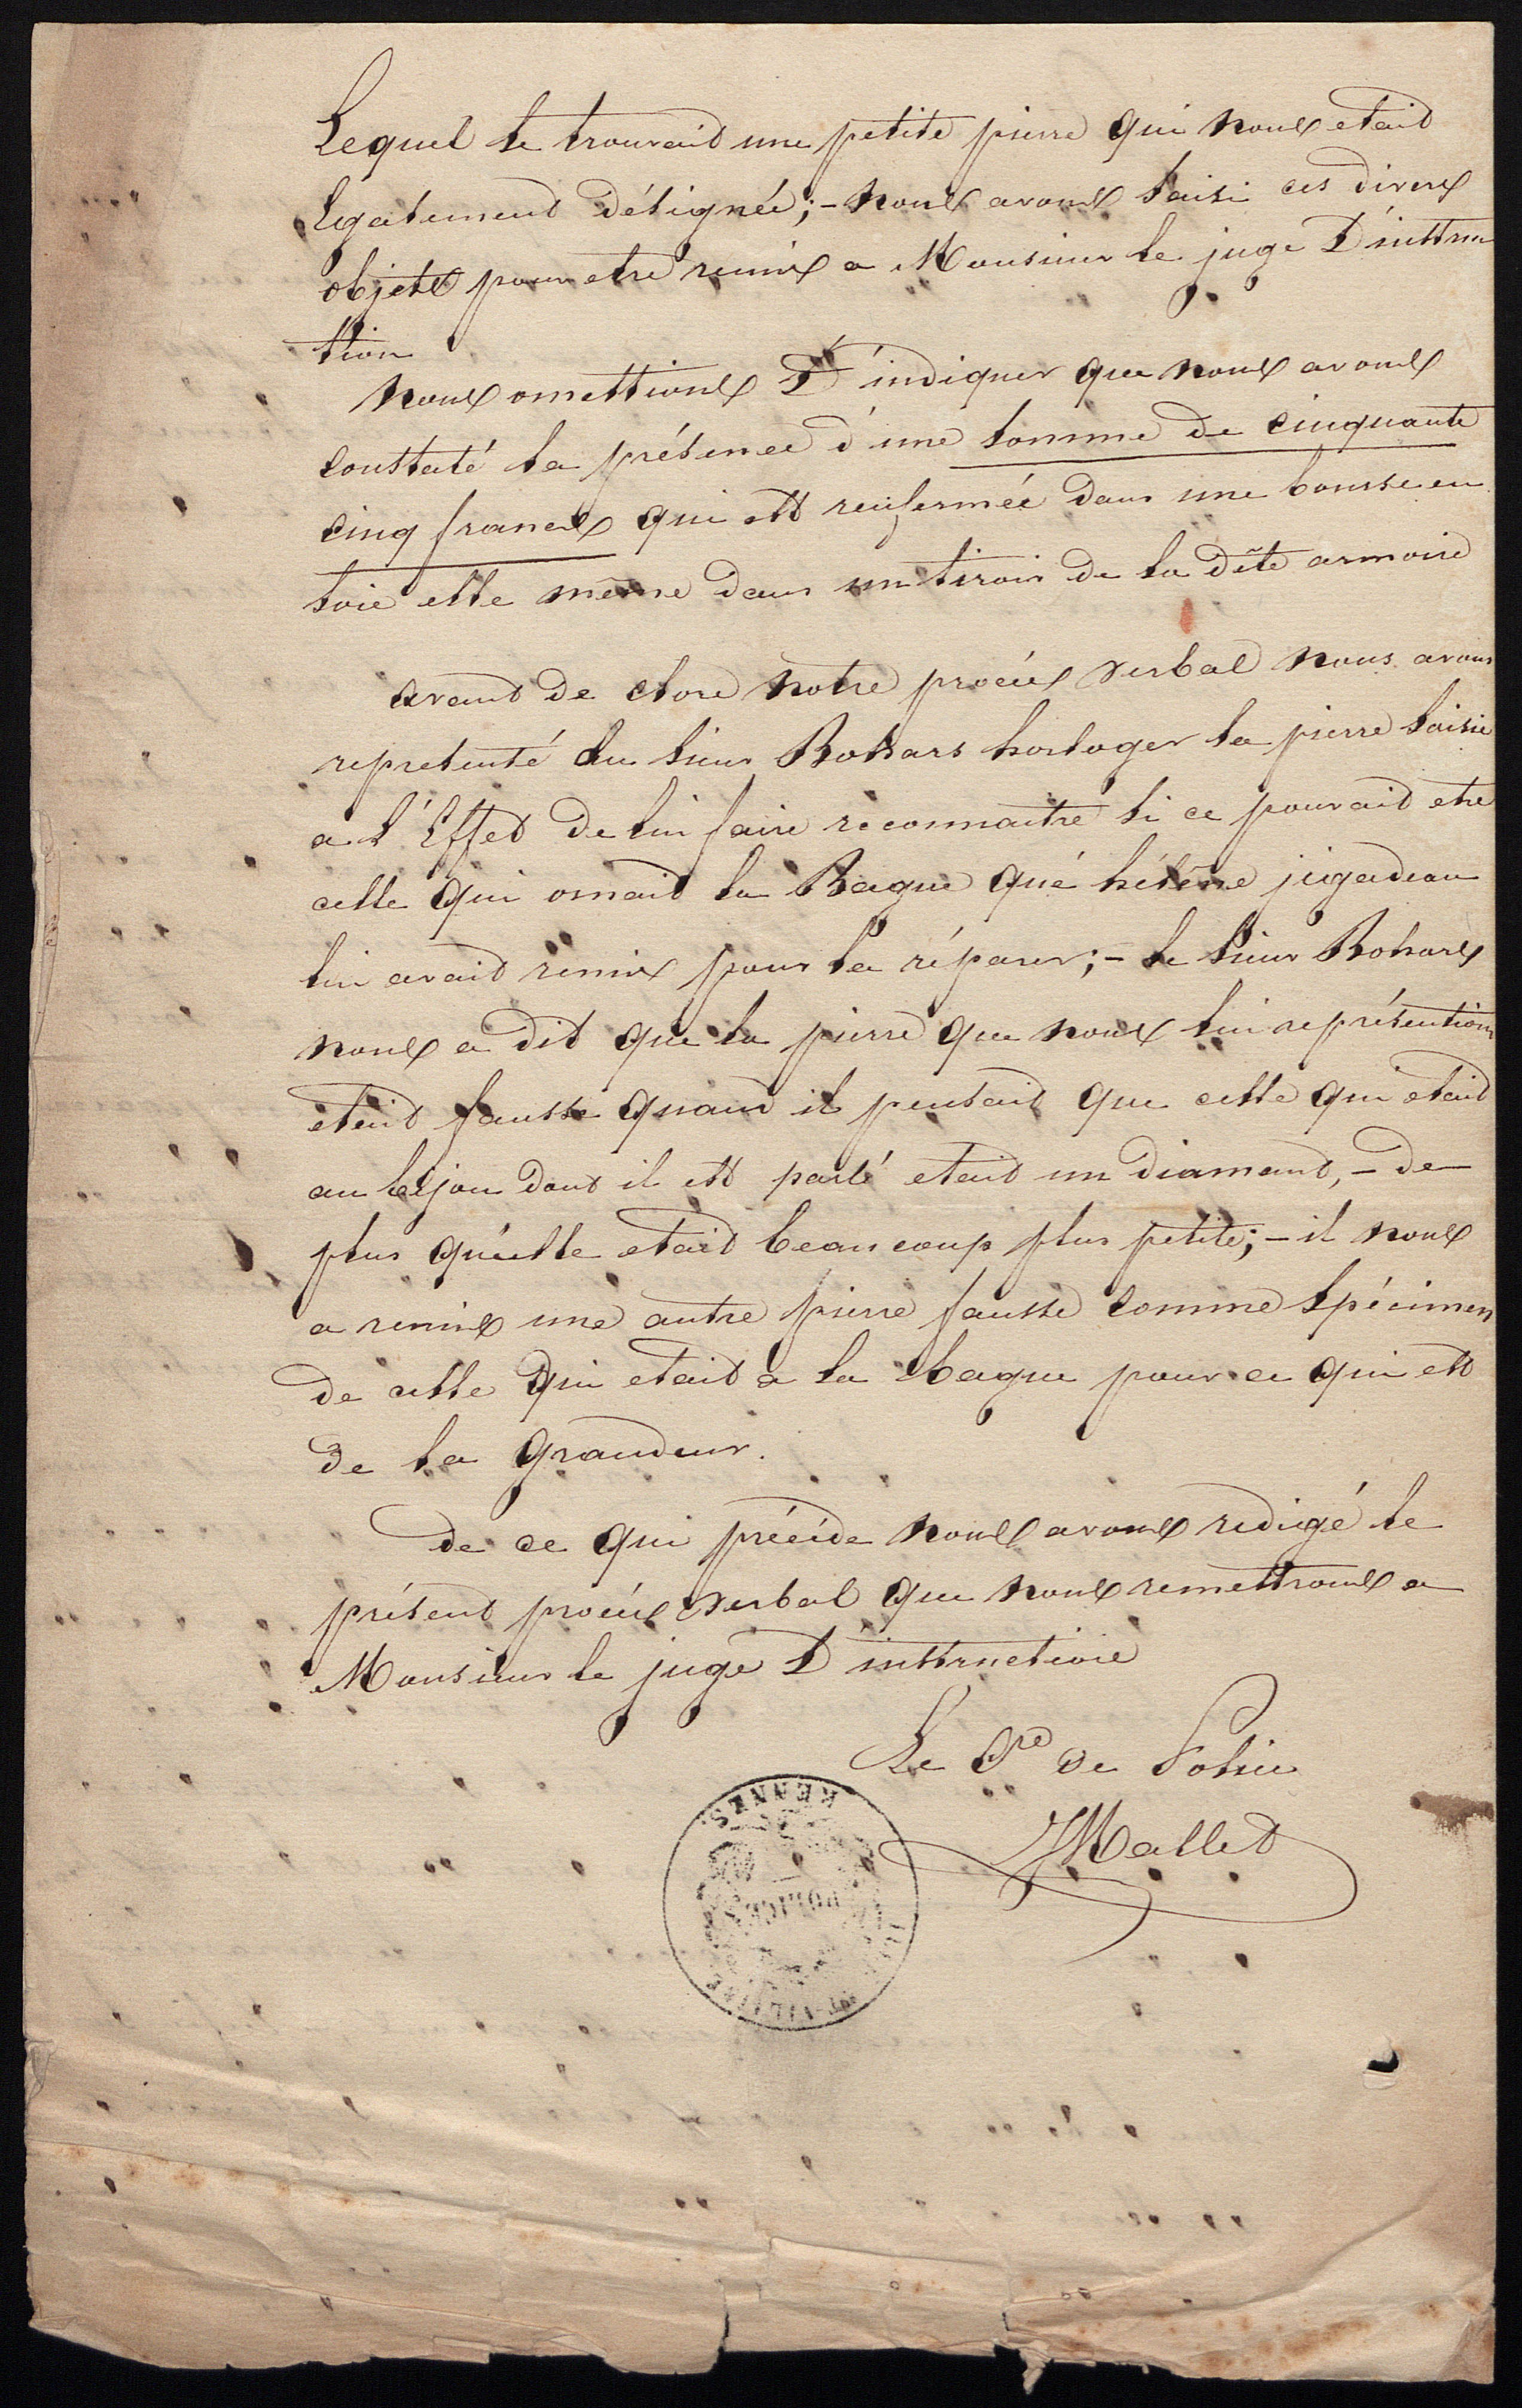 Lequel se trouvait une petite pierre qui nous etait
Egalement désignée; - nous avons saisi ces divers
objets pour etre remis a Monsieur le juge D'instruc
tion
nous omettions D'indiquer que nous avons
constaté la présence d'une somme de cinquante
cinq francs qui est renfermée dans une bourse en
soie elle même dans un tiroir de la dite armoire
avant de clore notre procès verbal nous avons
representé au sieur Bohars horloger la pierre saisie
a l'Effet de lui faire reconnaitre si ce pouvait etre
celle qui ornait la Bague que hélène jégadeau
lui avait remis pour la réparer; - le sieur Bohars
nous a dit que la pierre que nous lui représentions
etait fausse quand il pensait que celle qui etait
au bijou dont il est parlé etait un diamant, - de
plus qu'elle etait beaucoup plus petite; - il nous
a remis une autre pierre fausse comme spécimen
de celle qui etait a la bague pour ce qui est
de la grandeur.
de ce qui précède nous avons redigé le
présent procès verbal que nous remettrons a
Monsieur le juge D'instruction
Le Cre de Police
Mallet
RENNES
POLICE
ILLE-ET-VILAINE